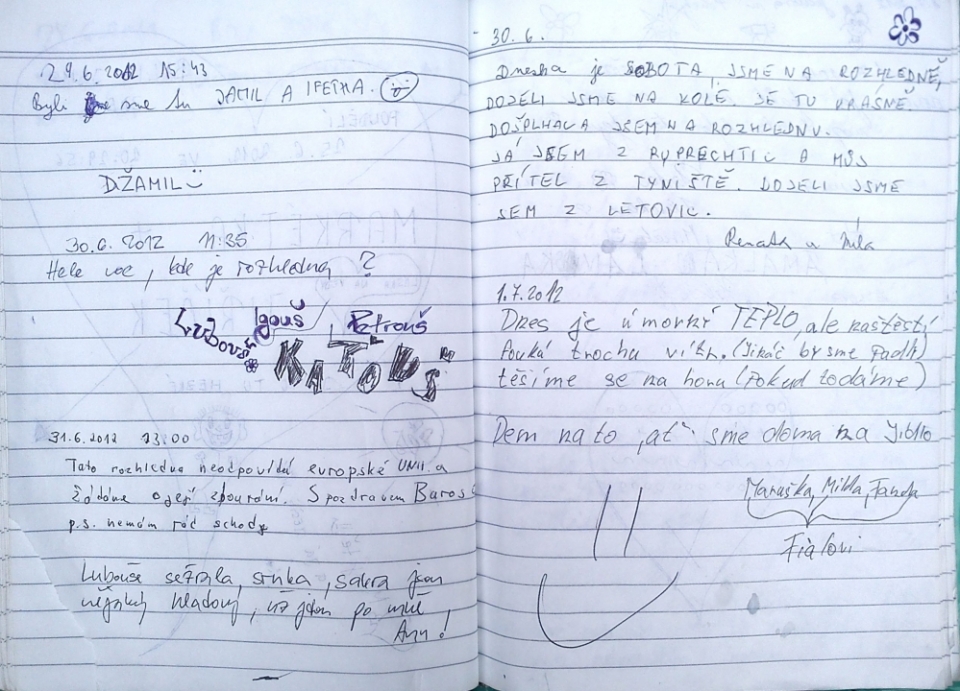 29.6.2012 15:43
Byli sme tu JAMIL A IPETKA.
DŽAMIL
30.6.2012 11:35
Hele voe, kde je rozhledna ?
Lubouš Igouš Petrouš
KATOUŠ
31.6.2012 13.00
Tato rozhledna neodpovídá evropské UNII a
žádáme o její zbourání. S pozdravem Baros
p.s. nemám rád schody
Lubouše sežrala, srnka, sakra jsou
hladový, už jdou po mně
!
30.6.
Dneska je SOBOTA, JSME NA ROZHLEDNĚ,
DOJELI JSME NA KOLE. JE TU KRÁSNĚ.
DOŠPLHALA JSEM NA ROZHLEDNU.
JÁ JSEM Z RUPRECHTIC A MŮJ
PŘÍTEL Z TÝNIŠTĚ. DOJELI JSME
SEM Z LETOVIC.
Renata a Míla
1.7.2012
Dnes je úmorný TEPLO, ale naštěstí
fouká trochu vítr. (Jináč by sme padli)
těšíme se na horu (Pokud todáme)
Dem na to, "ať" sme doma na
Maruška, Milda, Fanda
Fialovi